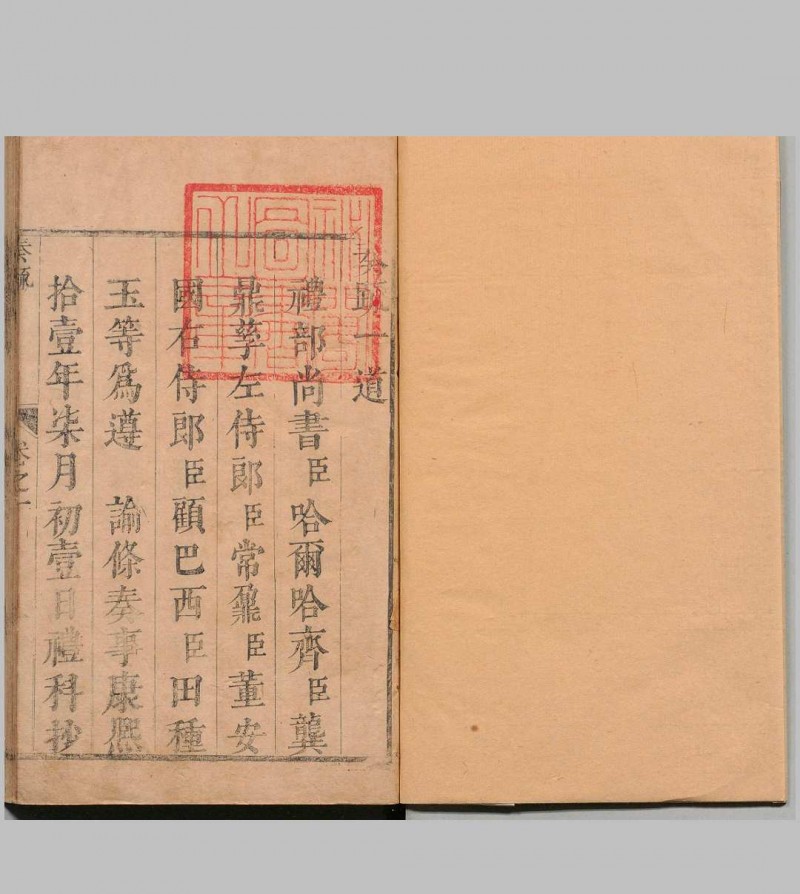 奏疏一道
禮部尚書臣哈爾哈齊臣龔
鼎孳左侍郎臣常鼐臣董安
國右侍郎臣顧巴西臣田種
玉等爲遵　諭條奏事康熙
拾壹年柒月初壹日禮科抄
奏疏
卷之一